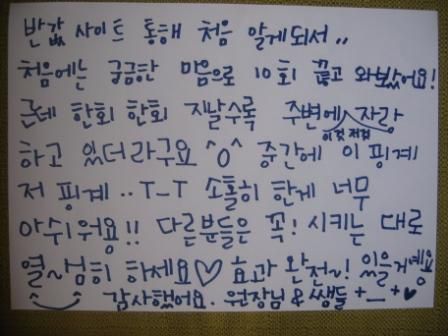 반값 사이트 통해 처음 알게되서..
처음에는 궁금한 마음으로 10회 끊고 와봤어요!
근데 한회 한회 지날수록 주변에 이것저것 자랑
하고 있더라구요 ^o^ 중간에 이 핑계
저 핑계.. T_T 소홀히 한게 너무
아쉬워용!! 다른분들은 꼭! 시키는 대로
열~심히 하세요♡ 효과 완전~! 있을거예요
감사했어요. 원장님 & 쌤들 +_+♥